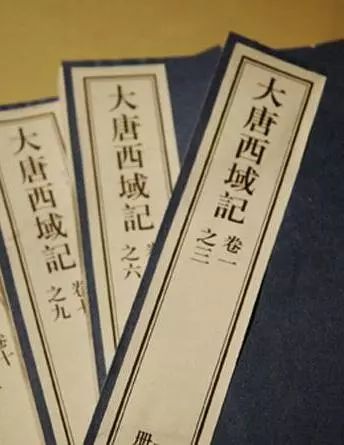 大唐西域記
卷一
之三
册
大唐西域記
卷
之六
大唐西域記
卷
之九
卷十